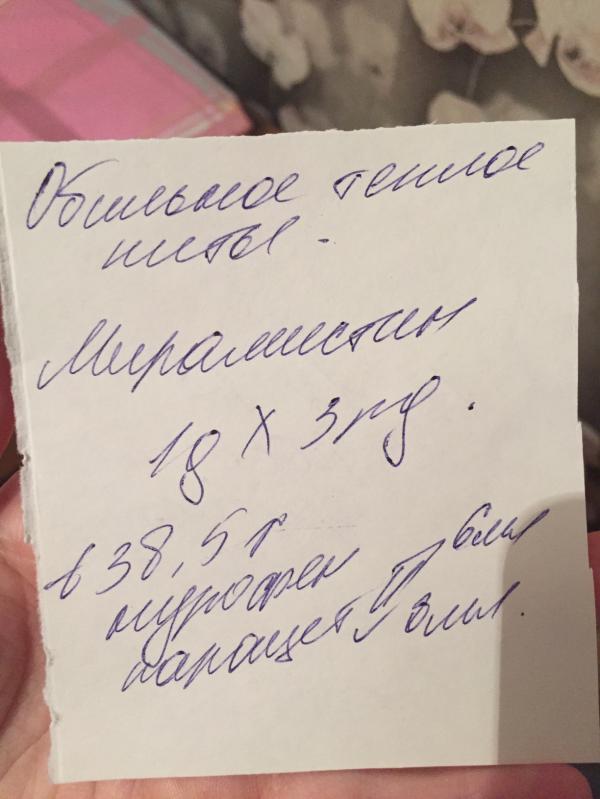 Обильное теплое
питье -
Мирамистин
1д X 3рд.
t 38,5
нурофен 6мл
парацет 3мл.